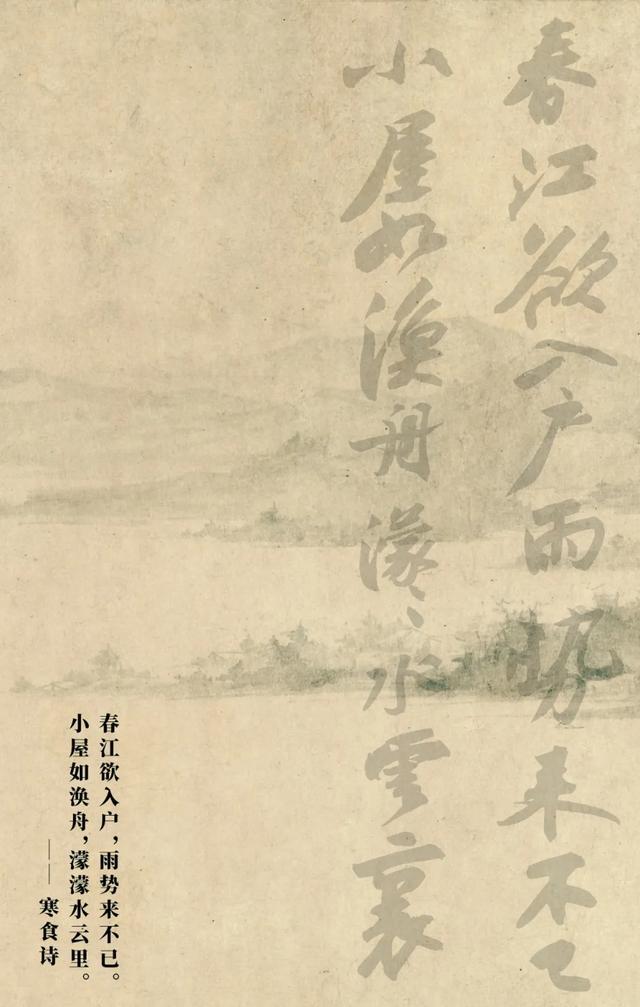 春江欲入户雨勢来不已
小屋如漁舟濛々水雲裏
春江欲入户，雨势来不已。
小屋如涣舟，濛濛水云里。
——寒食诗